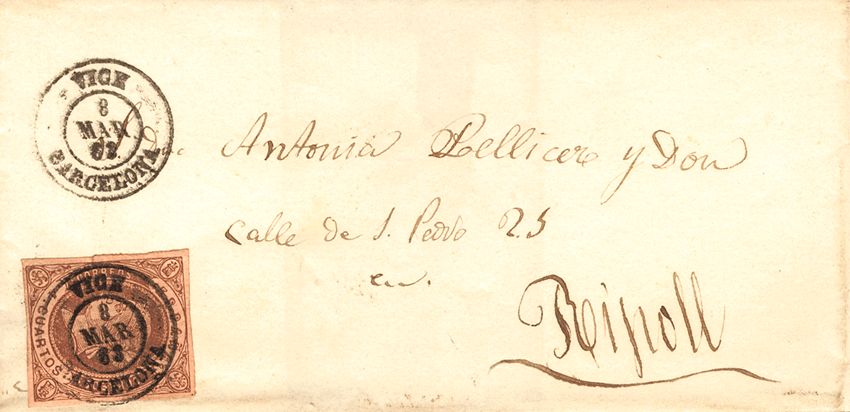 VICH
8
MAR
63
BARCELONA
Antonia Pellicer y Don
Calle de S. Pedro 25
en.
Ripoll
CORREOS
4 CUARTOS
VICH
8
MAR
63
BARCELONA